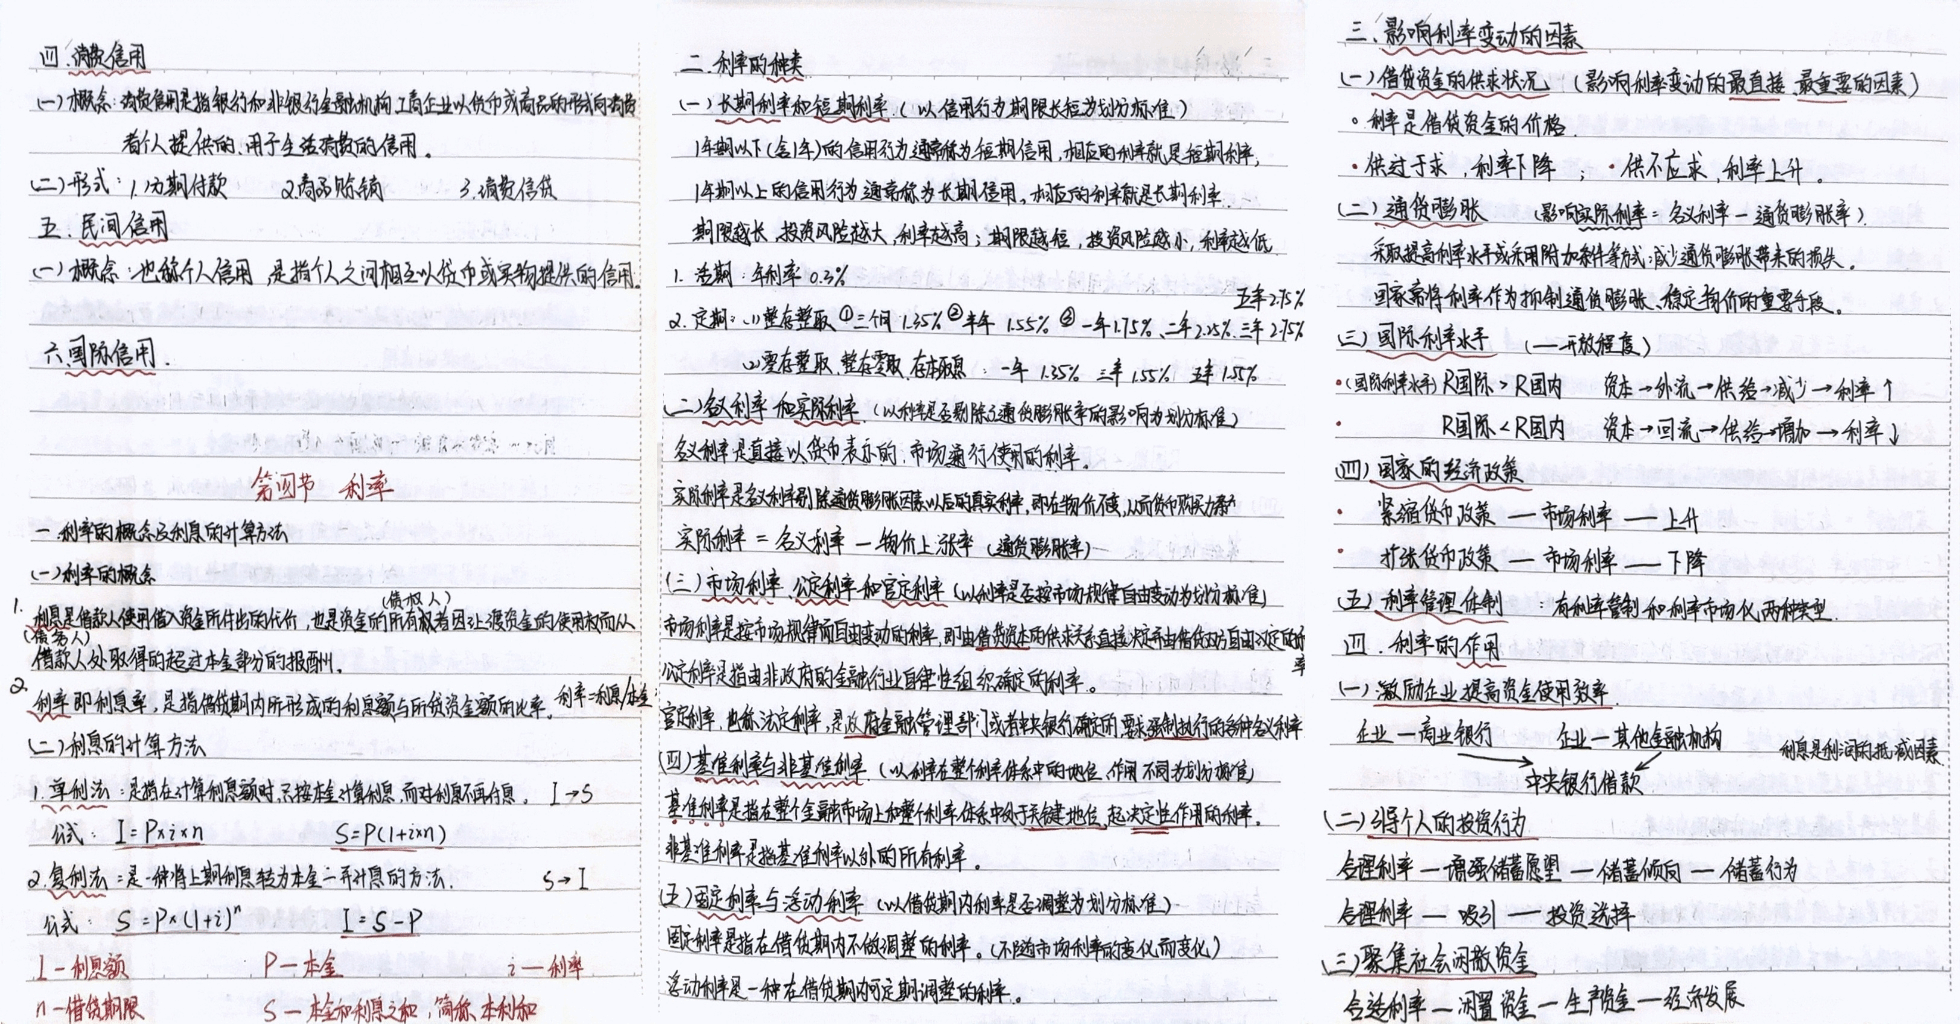 四.消费信用
(一)概念:消费信用是指银行和非银行金融机构工商企业以货币或商品的形式向消费
者个人提供的、用于生活消费的信用。
(二)形式: 1.分期付款 2.商品赊销 3.消费信贷
五.民间信用
(一)概念:也称个人信用,是指个人之间相互以货币或实物提供的信用。
六.国际信用.
第四节 利率
一.利率的概念及利息的计算方法
(一)利率的概念
(债权人)
1. 利息是借款人使用借入资金所付出的代价,也是资金的所有权者因让渡资金的使用权而从
(债务人)
借款人处取得的超过本金部分的报酬.
2. 利率即利息率,是指借贷期内所形成的利息额与所贷资金额的比率. 利率=利息/本金
(二)利息的计算方法
1.单利法:是指在计算利息额时,只按本金计算利息,而对利息不再付息. I→S
公式: I=P×i×n S=P(1+i×n)
2.复利法:是一种将上期利息转为本金一并计息的方法. S→I
公式: S=P×(1+i)ⁿ I=S-P
I—利息额 P—本金 i—利率
n—借贷期限 S—本金和利息之和,简称本利和
二.利率的种类
(一)长期利率和短期利率.(以信用行为期限长短为划分标准)
1年期以下(含1年)的信用行为通常称为短期信用,相应的利率就是短期利率,
1年期以上的信用行为通常称为长期信用,相应的利率就是长期利率.
期限越长,投资风险越大,利率越高;期限越短,投资风险越小,利率越低
1.活期:年利率0.3%
五年2.75%
2.定期:(1)整存整取①三个月1.35%②半年 1.55%③一年1.75%、二年2.25%.三年2.75%
(2)零存整取,整存零取,存本取息:一年 1.35% 三年 1.55% 五年 1.55%
(二)名义利率和实际利率.(以利率是否剔除了通货膨胀率的影响为划分标准)
名义利率是直接以货币表示的.市场通行使用的利率。
实际利率是名义利率剔除通货膨胀因素以后的真实利率,即在物价不变,从而货币购买力
实际利率=名义利率—物价上涨率(通货膨胀率)
(三)市场利率.公定利率和官定利率(以利率是否按市场规律自由变动为划分标准)
市场利率是按市场规律而自由变动的利率,即由借贷资本的供求关系直接决定并由借贷双方自由议定的利
率
公定利率是指由非政府的金融行业自律性组织确定的利率。
官定利率.也称法定利率,是政府金融管理部门或者中央银行确定的.要求强制执行的各种名义利率
(四)基准利率与非基准利率.(以利率在整个利率体系中的地位、作用不同为划分标准)
基准利率是指在整个金融市场上和整个利率体系中处于关键地位、起决定性作用的利率.
非基准利率是指基准利率以外的所有利率。
(五)固定利率与浮动利率(以借贷期内利率是否调整为划分标准)
固定利率是指在借贷期内不做调整的利率。(不随市场利率的变化而变化)
浮动利率是一种在借贷期内可定期调整的利率。
三.影响利率变动的因素
(一)借贷资金的供求状况 (影响利率变动的最直接、最重要的因素)
。利率是借贷资金的价格
·供过于求,利率下降; ·供不应求,利率上升。
(二)通货膨胀 (影响实际利率=名义利率—通货膨胀率)
采取提高利率水平或采用附加条件等方式,减少通货膨胀带来的损失。
国家常将利率作为抑制通货膨胀、稳定物价的重要手段。
(三)国际利率水平 (—开放程度)
·(国际利率水平)R国际>R国内 资本→外流→供给→减少→利率↑
· R国际<R国内 资本→回流→供给→增加→利率↓
(四)国家的经济政策
· 紧缩货币政策—市场利率—上升
· 扩张货币政策—市场利率—下降
(五)利率管理体制 —有利率管制和利率市场化两种类型.
四.利率的作用
(一)激励企业提高资金使用效率.
企业—商业银行 企业—其他金融机构 利息是利润的抵减因素
中央银行借款
(二)引导个人的投资行为
合理利率—增强储蓄愿望—储蓄倾向—储蓄行为
合理利率—吸引—投资选择
(三)聚集社会闲散资金
合适利率—闲置资金—生产资金—经济发展